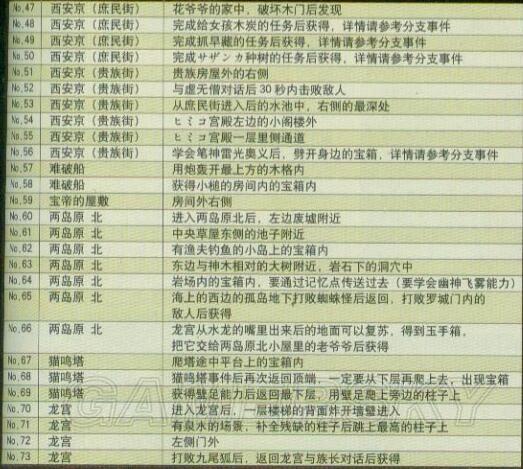 No.47 西安京（庶民街） 花爷爷的家中，破坏木门后发现
No.48 西安京（庶民街） 完成给女孩木炭的任务后获得，详情请参考分支事件
No.49 西安京（庶民街） 完成抓早藏的任务后获得，详情请参考分支事件
No.50 西安京（庶民街） 完成サザンカ种树的任务后获得，详情请参考分支事件
No.51 西安京（贵族街） 贵族房屋外的右侧
No.52 西安京（贵族街） 与虚无僧对话后30秒内击败敌人
No.53 西安京（贵族街） 从庶民街进入后的水池中，右侧的最深处
No.54 西安京（贵族街） ヒミコ宫殿左边的小阁楼外
No.55 西安京（贵族街） ヒミコ宫殿一层里侧通道
No.56 西安京（贵族街） 学会笔神雷光奥义后，劈开身边的宝箱，详情请参考分支事件
No.57 难破船 用炮轰开最上方的木格内
No.58 难破船 获得小槌的房间内的宝箱内
No.59 宝帝的屋敷 房间外右侧
No.60 两岛原 北 进入两岛原北后，左边废墟附近
No.61 两岛原 北 中央草屋东侧的池子附近
No.62 两岛原 北 有渔夫钓鱼的小岛上的宝箱内
No.63 两岛原 北 东边与神木相对的大树附近，岩石下的洞穴中
No.64 两岛原 北 岩场内的宝箱内，要通过记忆点传送过去（要学会幽神飞雾能力）
No.65 两岛原 北 海上的西边的孤岛地下打败蜘蛛怪后返回，打败罗城门内的
敌人后获得
No.66 两岛原 北 龙宫从水龙的嘴里出来后的地面可以复苏，得到玉手箱，
把它交给两岛原北小屋里的老爷爷后获得
No.67 猫鸣塔 爬塔途中平台上的宝箱内
No.68 猫鸣塔 猫鸣塔事件后再次返回顶端，一定要从下层再爬上去，出现宝箱
No.69 猫鸣塔 获得壁足能力后返回最下层，用壁足爬上旁边的柱子上
No.70 龙宫 进入龙宫后，一层楼梯的背面炸开墙壁进入
No.71 龙宫 有泉水的场景，补全残缺的柱子后跳上最高的柱子上
No.72 龙宫 左侧门外
No.73 龙宫 打败九尾狐后，返回龙宫与族长对话后获得